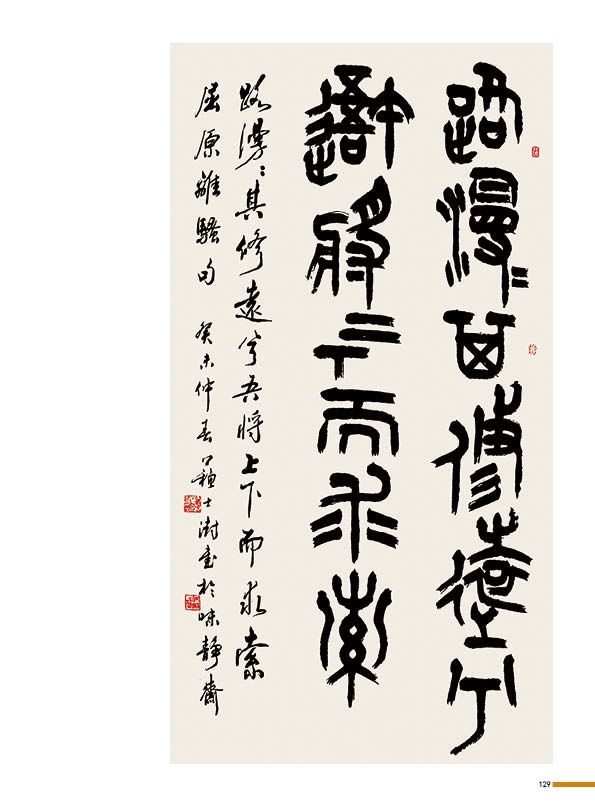 路漫〻其修遠兮
吾將上下而求索
路漫〻其修遠兮吾將上下而求索
屈原離騷句 癸未仲春 蘇士澍書於味靜齋
129